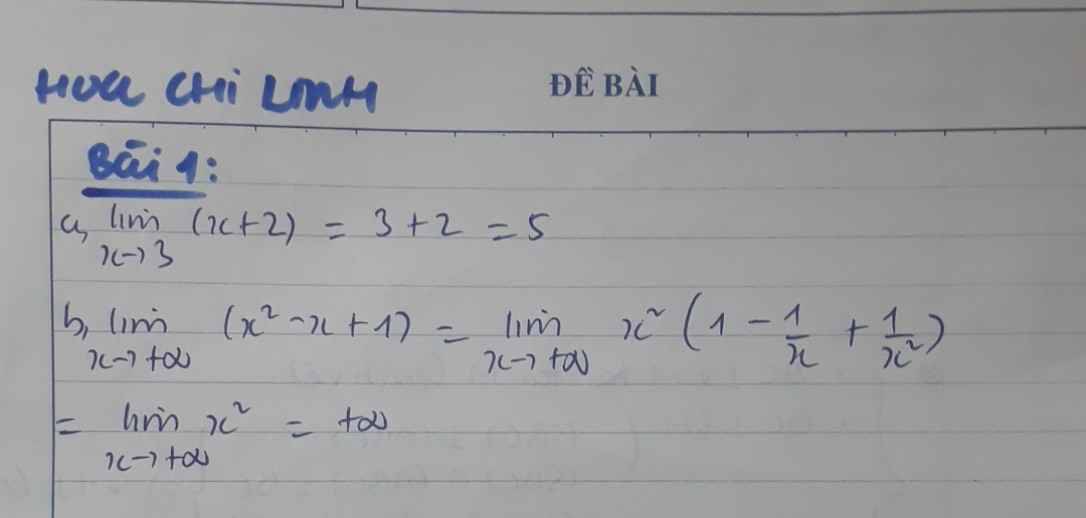 HUA CHI LINH
ĐỀ BÀI
Bài 1:
a, lim (x+2) = 3+2 = 5
x→3
b, lim (x² - x + 1) = lim x² (1 - 1/x + 1/x²)
x→+∞ x→+∞
= lim x² = +∞
x→+∞